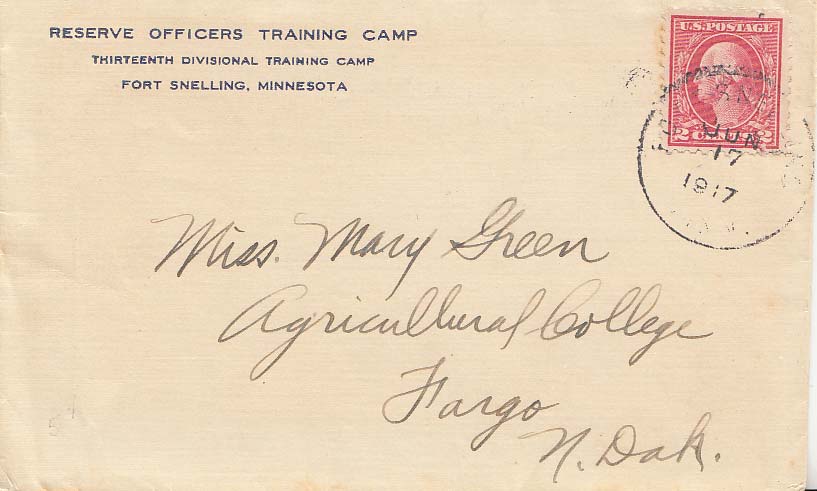 RESERVE OFFICERS TRAINING CAMP
THIRTEENTH DIVISIONAL TRAINING CAMP
FORT SNELLING, MINNESOTA
U.S. POSTAGE
2 2
JUN
17
1917
Miss. Mary Green
Agricultural College
Fargo
N. Dak.